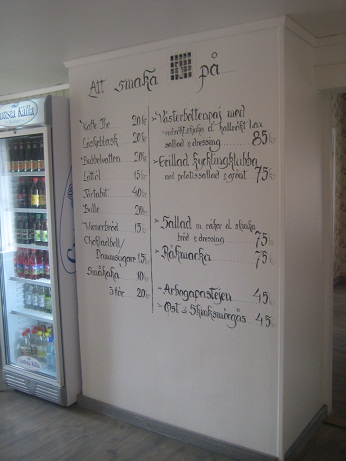 Att smaka på
Kaffe The 20kr
Läckeläsk 20kr
Bubbelvatten 20kr
Lättöl 15kr
Tårtabit 40kr
Bulle 20kr
Wienerbröd 15kr
Chokladboll/
Dammsugare 15kr
Småkaka 10kr
3 för 20kr
Västerbottenpaj med
rökt skinka el. kallrökt lax
sallad & dressing 85kr
Grillad kycklingklubba
med potatissallad & grönt 75kr
Sallad m. räkor el. skinka
bröd & dressing 75kr
Räkmacka 75kr
Arbogapastejen 45kr
Ost & Skinksmörgås 45kr
Källa